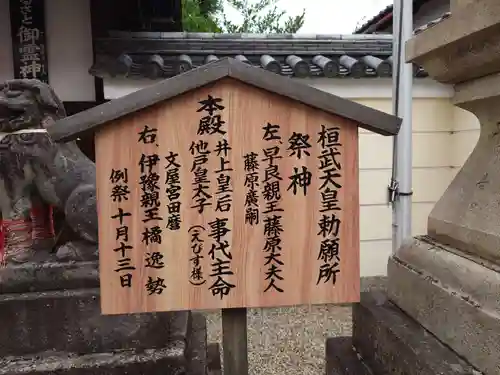 御霊神
桓武天皇勅願所
祭神
左 早良親王 藤原大夫人
藤原廣嗣
本殿 井上皇后 事代主命
他戸皇太子(えびす様)
文屋宮田麿
右 伊豫親王 橘逸勢
例祭 十月十三日